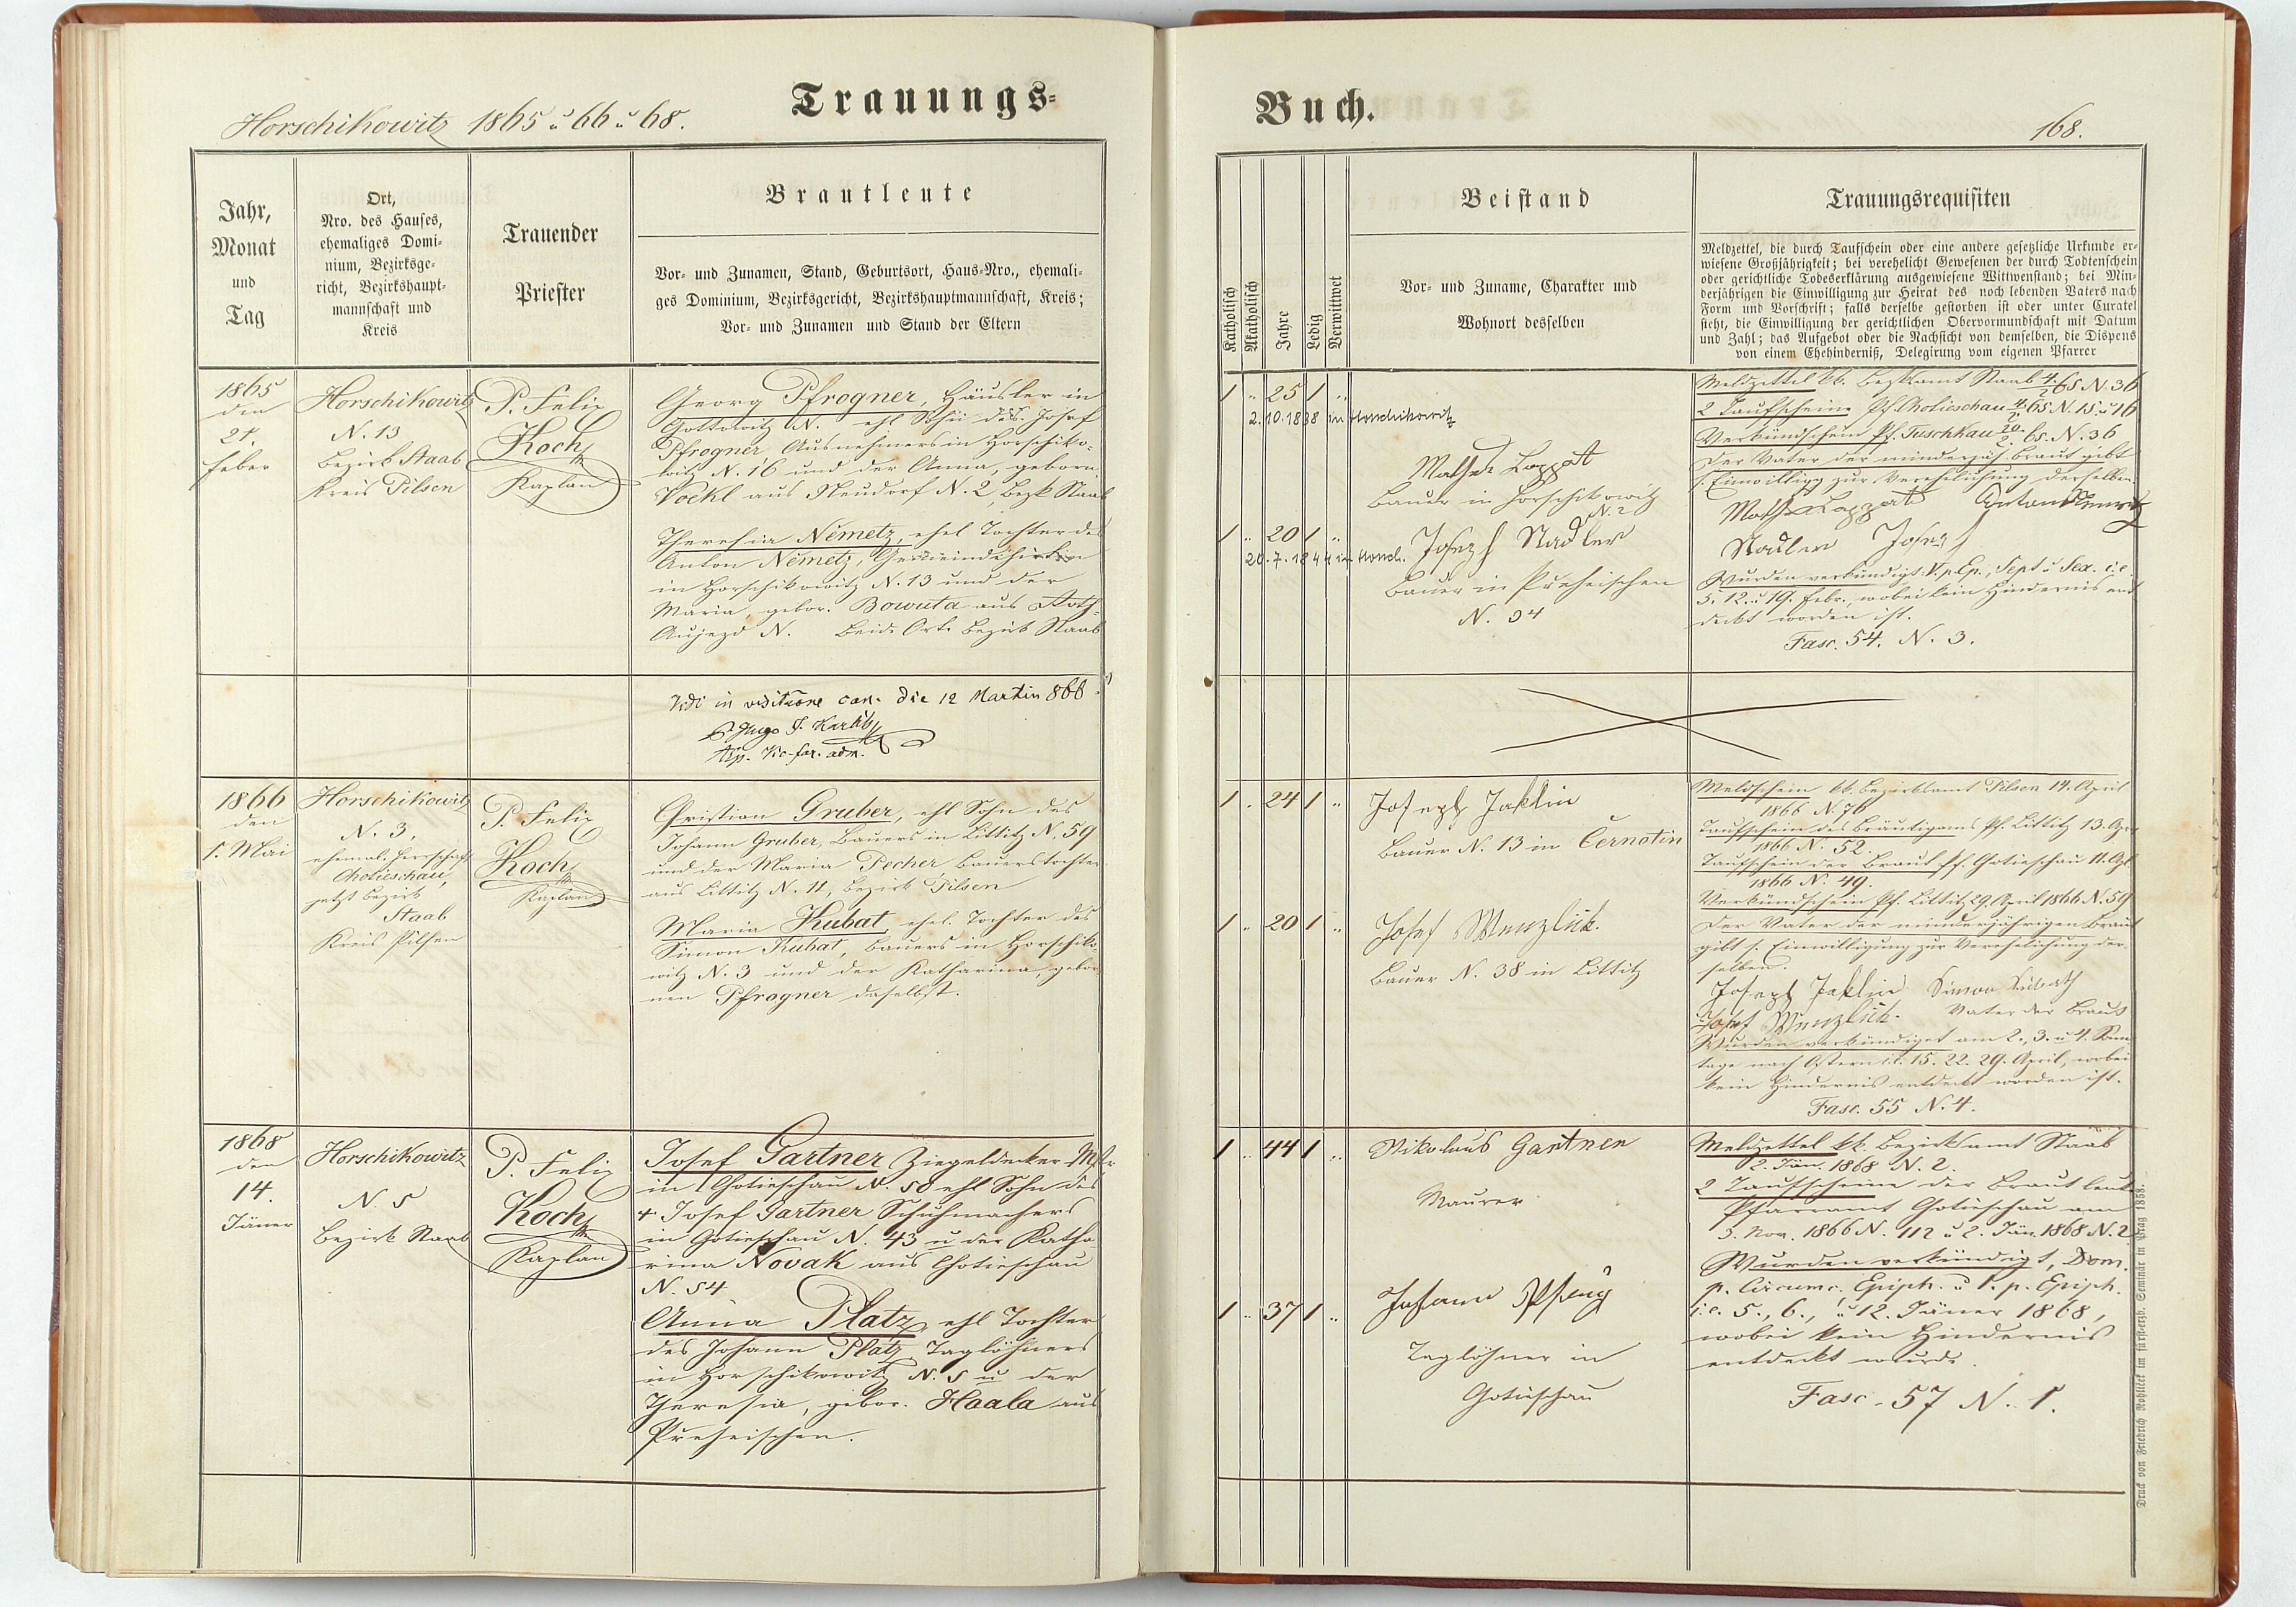 Horschikowitz 1865 u 66 u 68.
Trauungs-
Jahr,
Monat
und
Tag
Ort,
Nro. des Hauses,
ehemaliges Domi-
nium, Bezirksge-
richt, Bezirkshaupt-
mannschaft und
Kreis
Trauender
Priester
Brautleute
Vor- und Zunamen, Stand, Geburtsort, Haus-Nro., ehemali-
ges Dominium, Bezirksgericht, Bezirkshauptmannschaft, Kreis;
Vor- und Zunamen und Stand der Eltern
1865
den
21.
feber
Horschikowitz
N. 13
Bezirk Staab
Kreis Pilsen
P. Felix
Koch
Kaplan
Georg Pfrogner, Häusler in
Gottowitz N. ehl Sohn des Josef
Pfrogner Ausnehmers in Horschiko-
witz N. 16 und der Anna, geborn.
Voekl aus Neudorf N. 2, Bezk Staab
Theresia Nemetz, ehel Tochter des
Anton Nemetz, Gemeindehirten
in Horschikowitz N. 13 und der
Maria gebor. Bowuta aus Roth-
Aujezd N. beide Orte Bezirk Staab
Vidi in visitatione can. die 12 Martin 866
1866
den
1. Mai
Horschikowitz
N. 3,
ehemal. Herrschaft
Chotieschau,
jetzt Bezirk
Staab
Kreis Pilsen
P. Felix
Koch
Kaplan
Christian Gruber, ehl Sohn des
Johann Gruber, Bauers in Littitz N. 59
und der Maria Pecher, Bauerstochter
aus Littitz N. 11, Bezirk Pilsen
Maria Kubat, ehel. Tochter des
Simon Kubat, Bauers in Horschiko-
witz N. 3 und der Katharina, gebor-
nen Pfrogner daselbst.
1868
den
14.
Jäner
Horschikowitz
N. 5
Bezirk Staab
P. Felix
Koch
Kaplan
Josef Gartner Ziegeldecker Mstr
in Chotieschau N. 58 ehl Sohn des
+ Josef Gartner Schuhmachers
in Chotieschau N. 43 u der Katha-
rina Novak aus Chotieschau
N. 54
Anna Platz, ehl Tochter
des Johann Platz Taglöhners
in Horschikowitz N. 5 u der
Theresia, gebor. Haala aus
Preheischen.
Buch.
168.
Katholisch
Akatholisch
Jahre
Ledig
Verwittwet
Beistand
Vor- und Zuname, Charakter und
Wohnort desselben
Trauungsrequisiten
Meldzettel, die durch Taufschein oder eine andere gesetzliche Urkunde er-
wiesene Großjährigkeit; bei verehelicht Gewesenen der durch Todtenschein
oder gerichtliche Todeserklärung ausgewiesene Wittwenstand; bei Min-
derjährigen die Einwilligung zur Heirat des noch lebenden Vaters nach
Form und Vorschrift; falls derselbe gestorben ist oder unter Curatel
steht, die Einwilligung der gerichtlichen Obervormundschaft mit Datum
und Zahl; das Aufgebot oder die Nachsicht von demselben, die Dispens
von einem Ehehinderniß, Delegirung vom eigenen Pfarrer
1 .. 25 1 ..
2.10.1838 in Horschikowitz
Mathes Loppat
Bauer in Horschikowitz
N. 2
1 .. 20 1 ..
20.7.1844 in Horsch.
Joseph Stadler
Bauer in Preheischen
N. 34
Meldzettel kk. Bezksamt Staab 4./2. 65 N. 36
2 Taufscheine Pf. Chotieschau 4/2 65. N. 15 u 16
Verkündschein Pf. Tuschkau 20./2. 65. N. 36
Der Vater der minderjäh. Braut gibt
s. Einwilligg zur Verehelichung derselben.
Mathes Loppat Anton Nemetz
Stadler Josef
Wurden verkündigt V. p. Ep., Sept u Sex. i.e.
5. 12. u 19. Febr., wobei kein Hindernis ent-
deckt worden ist.
Fasc. 54. N. 3.
1 . 24 1 ..
Joseph Jaklin
Bauer N. 13 in Černotin
1 .. 20 1 ..
Josef Wenzlick.
Bauer N. 38 in Littitz
Meldschein kk. Bezirksamt Pilsen 14. April
1866 N. 76
Taufschein des Bräutigams Pf. Littitz 13. Apr
1866 N. 52
Taufschein der Braut Pf. Chotieschau 11. Apl
1866 N. 49.
Verkündschein Pf. Littitz 29. April 1866 N. 59
Der Vater der minderjährigen Braut
gibt s. Einwilligung zur Verehelichung der-
selben.
Joseph Jaklin Simon Kubath
Josef Wenzlick. Vater der Braut
Wurden verkündiget am 2., 3. u 4. Sonn-
tage nach Ostern i.e. 15. 22. 29. April, wobei
kein Hindernis entdeckt worden ist.
Fasc. 55 N. 4.
1 .. 44 1 ..
Nikolaus Gartner
Maurer
1 .. 37 1 ..
Johann
Taglöhner in
Chotieschau
Meldzettel kk. Bezirksamt Staab
2. Jän. 1868 N. 2.
2 Taufscheine der Brautleute
Pfarramt Chotieschau am
3. Nov. 1866 N. 112 u 2. Jän. 1868 N. 2
Wurden verkündigt, Dom.
p. Circumc. Epiph. u 1. p. Epiph.
i.e. 5., 6., u 12. Jäner 1868,
wobei kein Hindernis
entdeckt wurde.
Fasc. 57 N. 1.
Druck von Friedrich Rohlíček im fürsterzb. Seminär in Prag 1858.